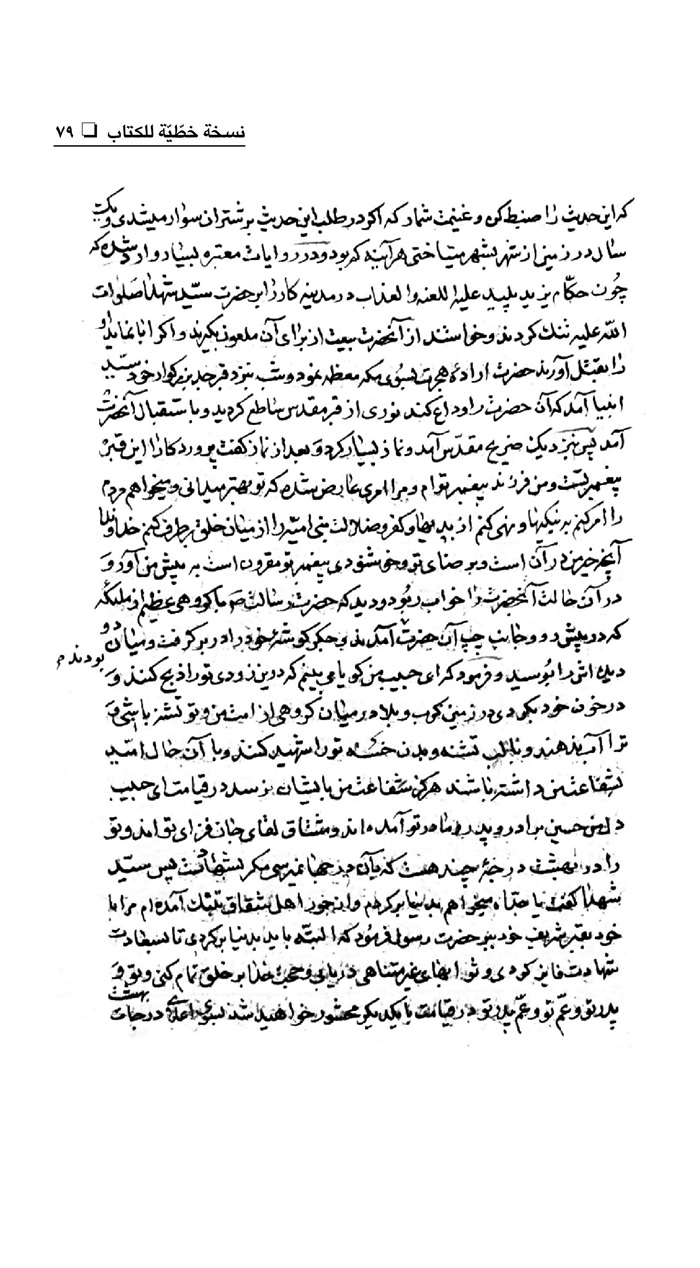 نسخة خطّيّة للكتاب ❏ ٧٩
که این حدیث را ضبط کن و غنیمت شمار که اگر در طلب این حدیث بر شتران سوار میشدی و یکت
سال در زمین از شهر بشهر میتاختی هر آینه کم بود و در روایات معتبره بسیار وارد شده که
چون حکّام یزید پلید علیه اللعنه والعذاب در مدینه کار را بر حضرت سیّد شهدا صلوات
اللّه علیه تنک کردند و خواستند از آنحضرت بیعت از برای آن ملعون بگیرند و اگر ابا نماید او
را بقتل آورند حضرت اراده هجرت بسوی مکه معظمه نمود و شب نزد قبر جد بزرگوار خود سیّد
انبیا آمد که آن حضرت را وداع کند نوری از قبر مقدس ساطع گردید و باستقبال آنحضرت
آمد پس نزدیک ضریح مقدّس آمد و نماز بسیار کرد و بعد از نماز گفت پروردگارا این قبر
پیغمبر تست و من فرزند پیغمبر توام و مرا امری عارض شده که تو بهتر میدانی و میخواهم مردم
را امر کنم به نیکیها و نهی کنم از بدیها و کفر و ضلالت بنی امیّه را از میان خلق برطرف کنم خداوندا
آنچه خیر من در آن است و برضای تو و خوشنودی پیغمبر تو مقرون است به پیش من آور و
در آن حالت آنحضرت را خواب ربود و دید که حضرت رسالت ص با گروهی عظیم از ملئکه
که در پیش رو و جانب چپ آن حضرت آمدند و جگر گوشهٔ خود را در بر گرفت و میان دو
بودند م
دیده اش را بوسید و فرمود که ای حبیب من گویا می بینم که درین زودی تو را ذبح کنند و
در خون خود بگردی در زمین کرب و بلا در میان گروهی از امت من و تو تشنه باشی و
ترا آب ندهند و با لب تشنه و بدن خسته تو را شهید کنند و با آن حال امّید
شفاعت من داشته باشند هرگز شفاعت من بایشان نرسد در قیامت ای حبیب
دل من حسین برادر و پدر و مادر تو آمده اند و مشتاق لقای جان فزای تو اند و تو
را در بهشت درجهٔ چند هست که بآن درجها نمیرسی مگر بشهادت پس سیّد
شهدا گفت یا جدّاه میخواهم بدنیا برگردم و از جور اهل شقاق بتنگ آمده ام مرا با
خود بقبر شریف خود ببر حضرت رسول فرمود که البته باید بدنیا برگردی تا بسعادت
شهادت فایز گردی و ثوابهای غیر متناهی دریابی و حجت خدا بر خلق تمام کنی و تو و
پدر تو و عمّ تو و عمّ پدر تو در قیامت با یکدیگر محشور خواهید شد بسوی اعلای درجات
بهشت